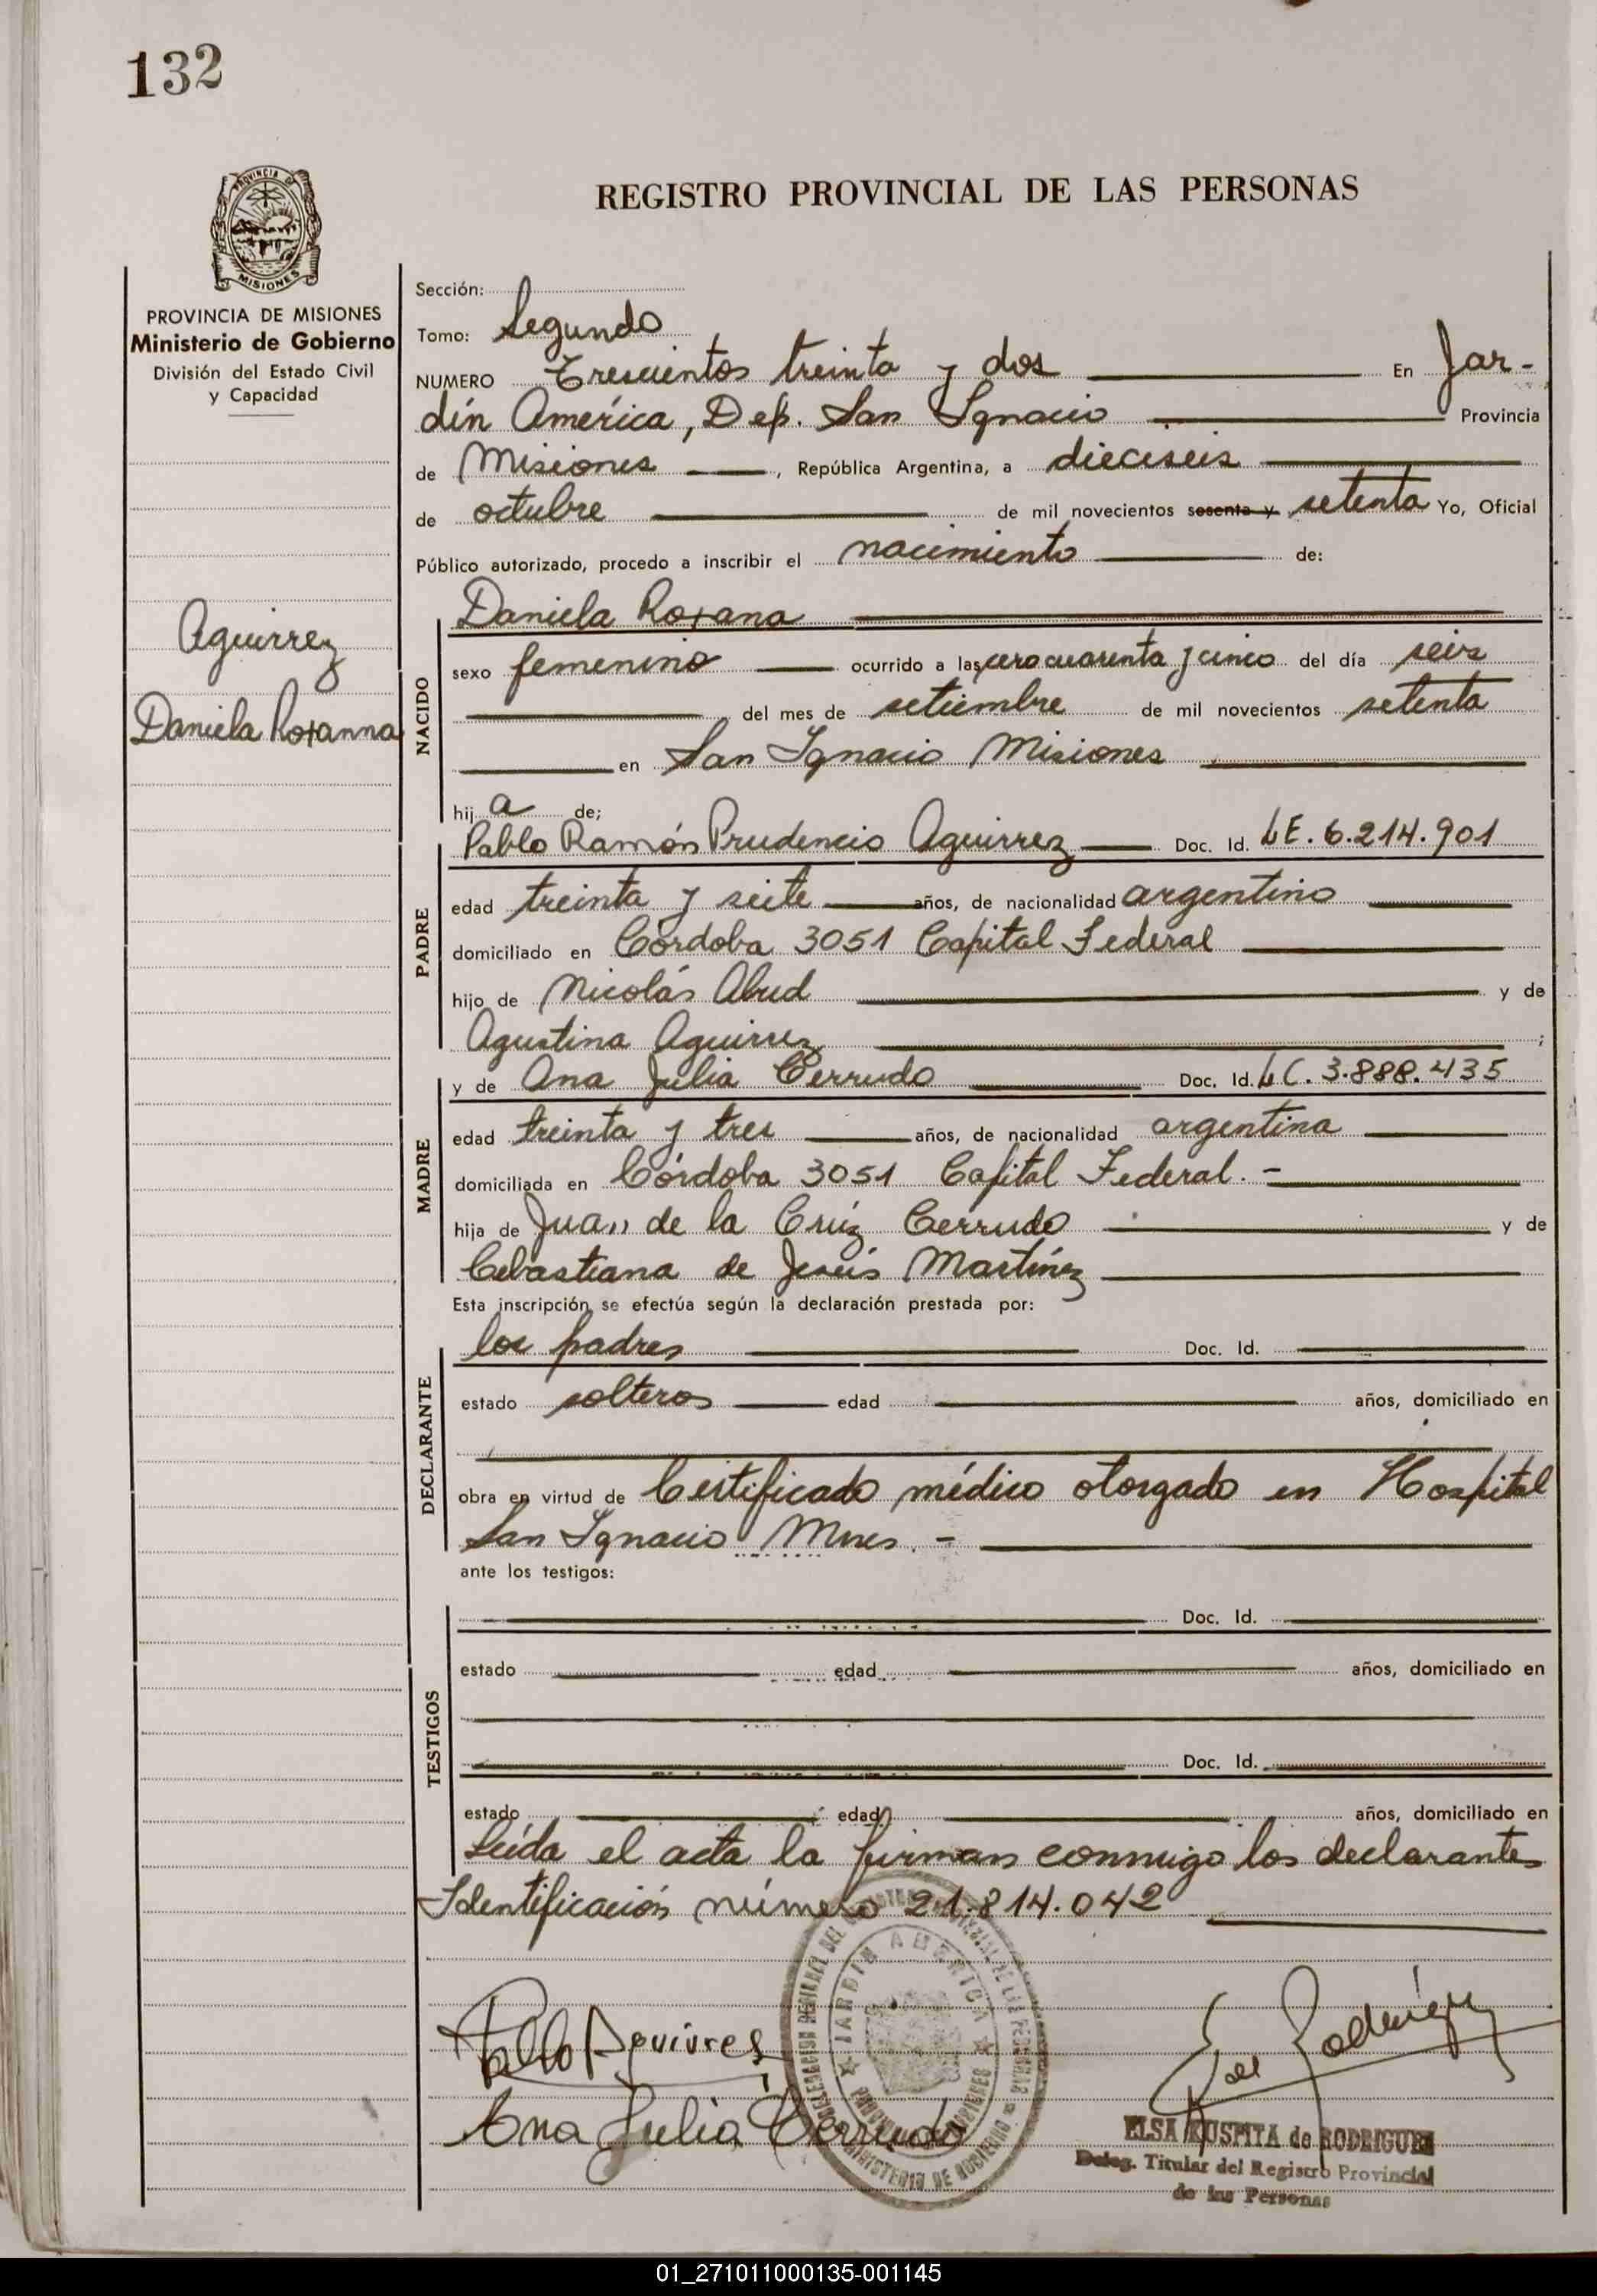 132
PROVINCIA DE
MISIONES
REGISTRO PROVINCIAL DE LAS PERSONAS
PROVINCIA DE MISIONES
Ministerio de Gobierno
División del Estado Civil
y Capacidad
Aguirrez
Daniela Roxanna
Sección:
Tomo: Segundo
NUMERO Trescientos treinta y dos En Jar-
dín América, Dep. San Ignacio Provincia
de Misiones, República Argentina, a dieciseis
de octubre de mil novecientos sesenta y setenta Yo, Oficial
Público autorizado, procedo a inscribir el nacimiento de:
NACIDO
Daniela Roxana
sexo femenino ocurrido a las cero cuarenta y cinco del día seis
del mes de setiembre de mil novecientos setenta
en San Ignacio Misiones
hija de;
PADRE
Pablo Ramón Prudencio Aguirrez Doc. Id. LE. 6.214.901
edad treinta y seite años, de nacionalidad argentino
domiciliado en Córdoba 3051 Capital Federal
hijo de Nicolás Abud y de
Agustina Aguirrez ;
MADRE
y de Ana Julia Cerrudo Doc. Id. LC. 3.888.435
edad treinta y tres años, de nacionalidad argentina
domiciliada en Córdoba 3051 Capital Federal.-
hija de Juan de la Cruz Cerrudo y de
Cebastiana de Jesús Martínez
Esta inscripción se efectúa según la declaración prestada por:
DECLARANTE
los padres Doc. Id.
estado solteros edad años, domiciliado en
obra en virtud de Certificado médico otorgado en Hospital
San Ignacio Mnes.-
ante los testigos:
TESTIGOS
Doc. Id.
estado edad años, domiciliado en
Doc. Id.
estado edad años, domiciliado en
Leída el acta la firman conmigo los declarantes
Identificación número 21.814.042
JARDIN AMERICA
MINISTERIO DE GOBIERNO
Pablo Aguirres
Ana Julia Cerrudo
E de Rodriguez
ELSA KUSPITA de RODRIGUEZ
Deleg. Titular del Registro Provincial
de las Personas
01_271011000135-001145